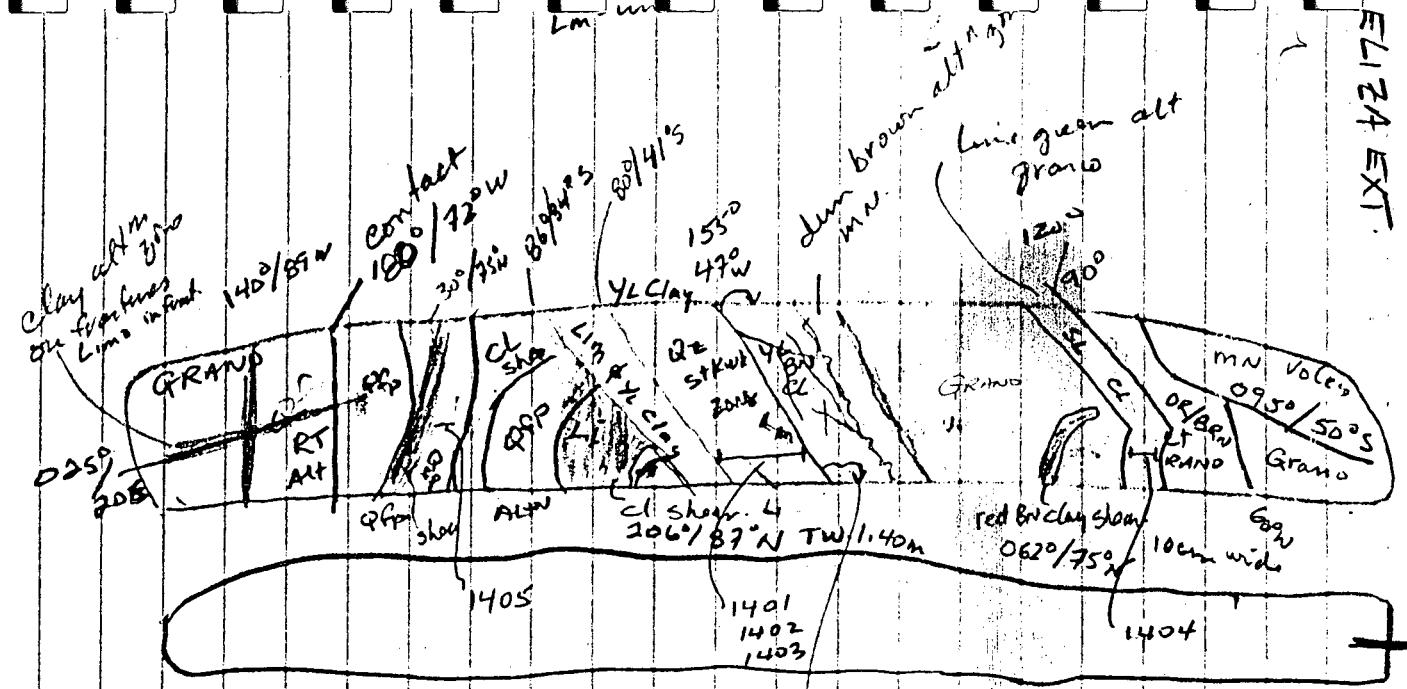 ELIZA EXT.
Lm-
brown altn zone
dum
mN.
Lime green alt
grano
clay altn zone
on fractures
Limo infract
140°/89N
contact
180°/72°W
30°/75N
86/84°S
80/41°S
YL Clay
153°
47°W
120°
90°
GRANO
RT
Alt
QFP
CL
shear
QFP
YL Clay
Qz
StKwk
zone
Lm
YL
BN
CL
GRANO
CL
OR/BRN
LT
GRANO
mN Volcs
095°/50°S
Grano
025°/20S
QFP
shear
ALTN
Cl Shear
206°/87°N TW 1.40m
red Bn clay shear
062°/75°N
10cm wide
1405
1401
1402
1403
1404